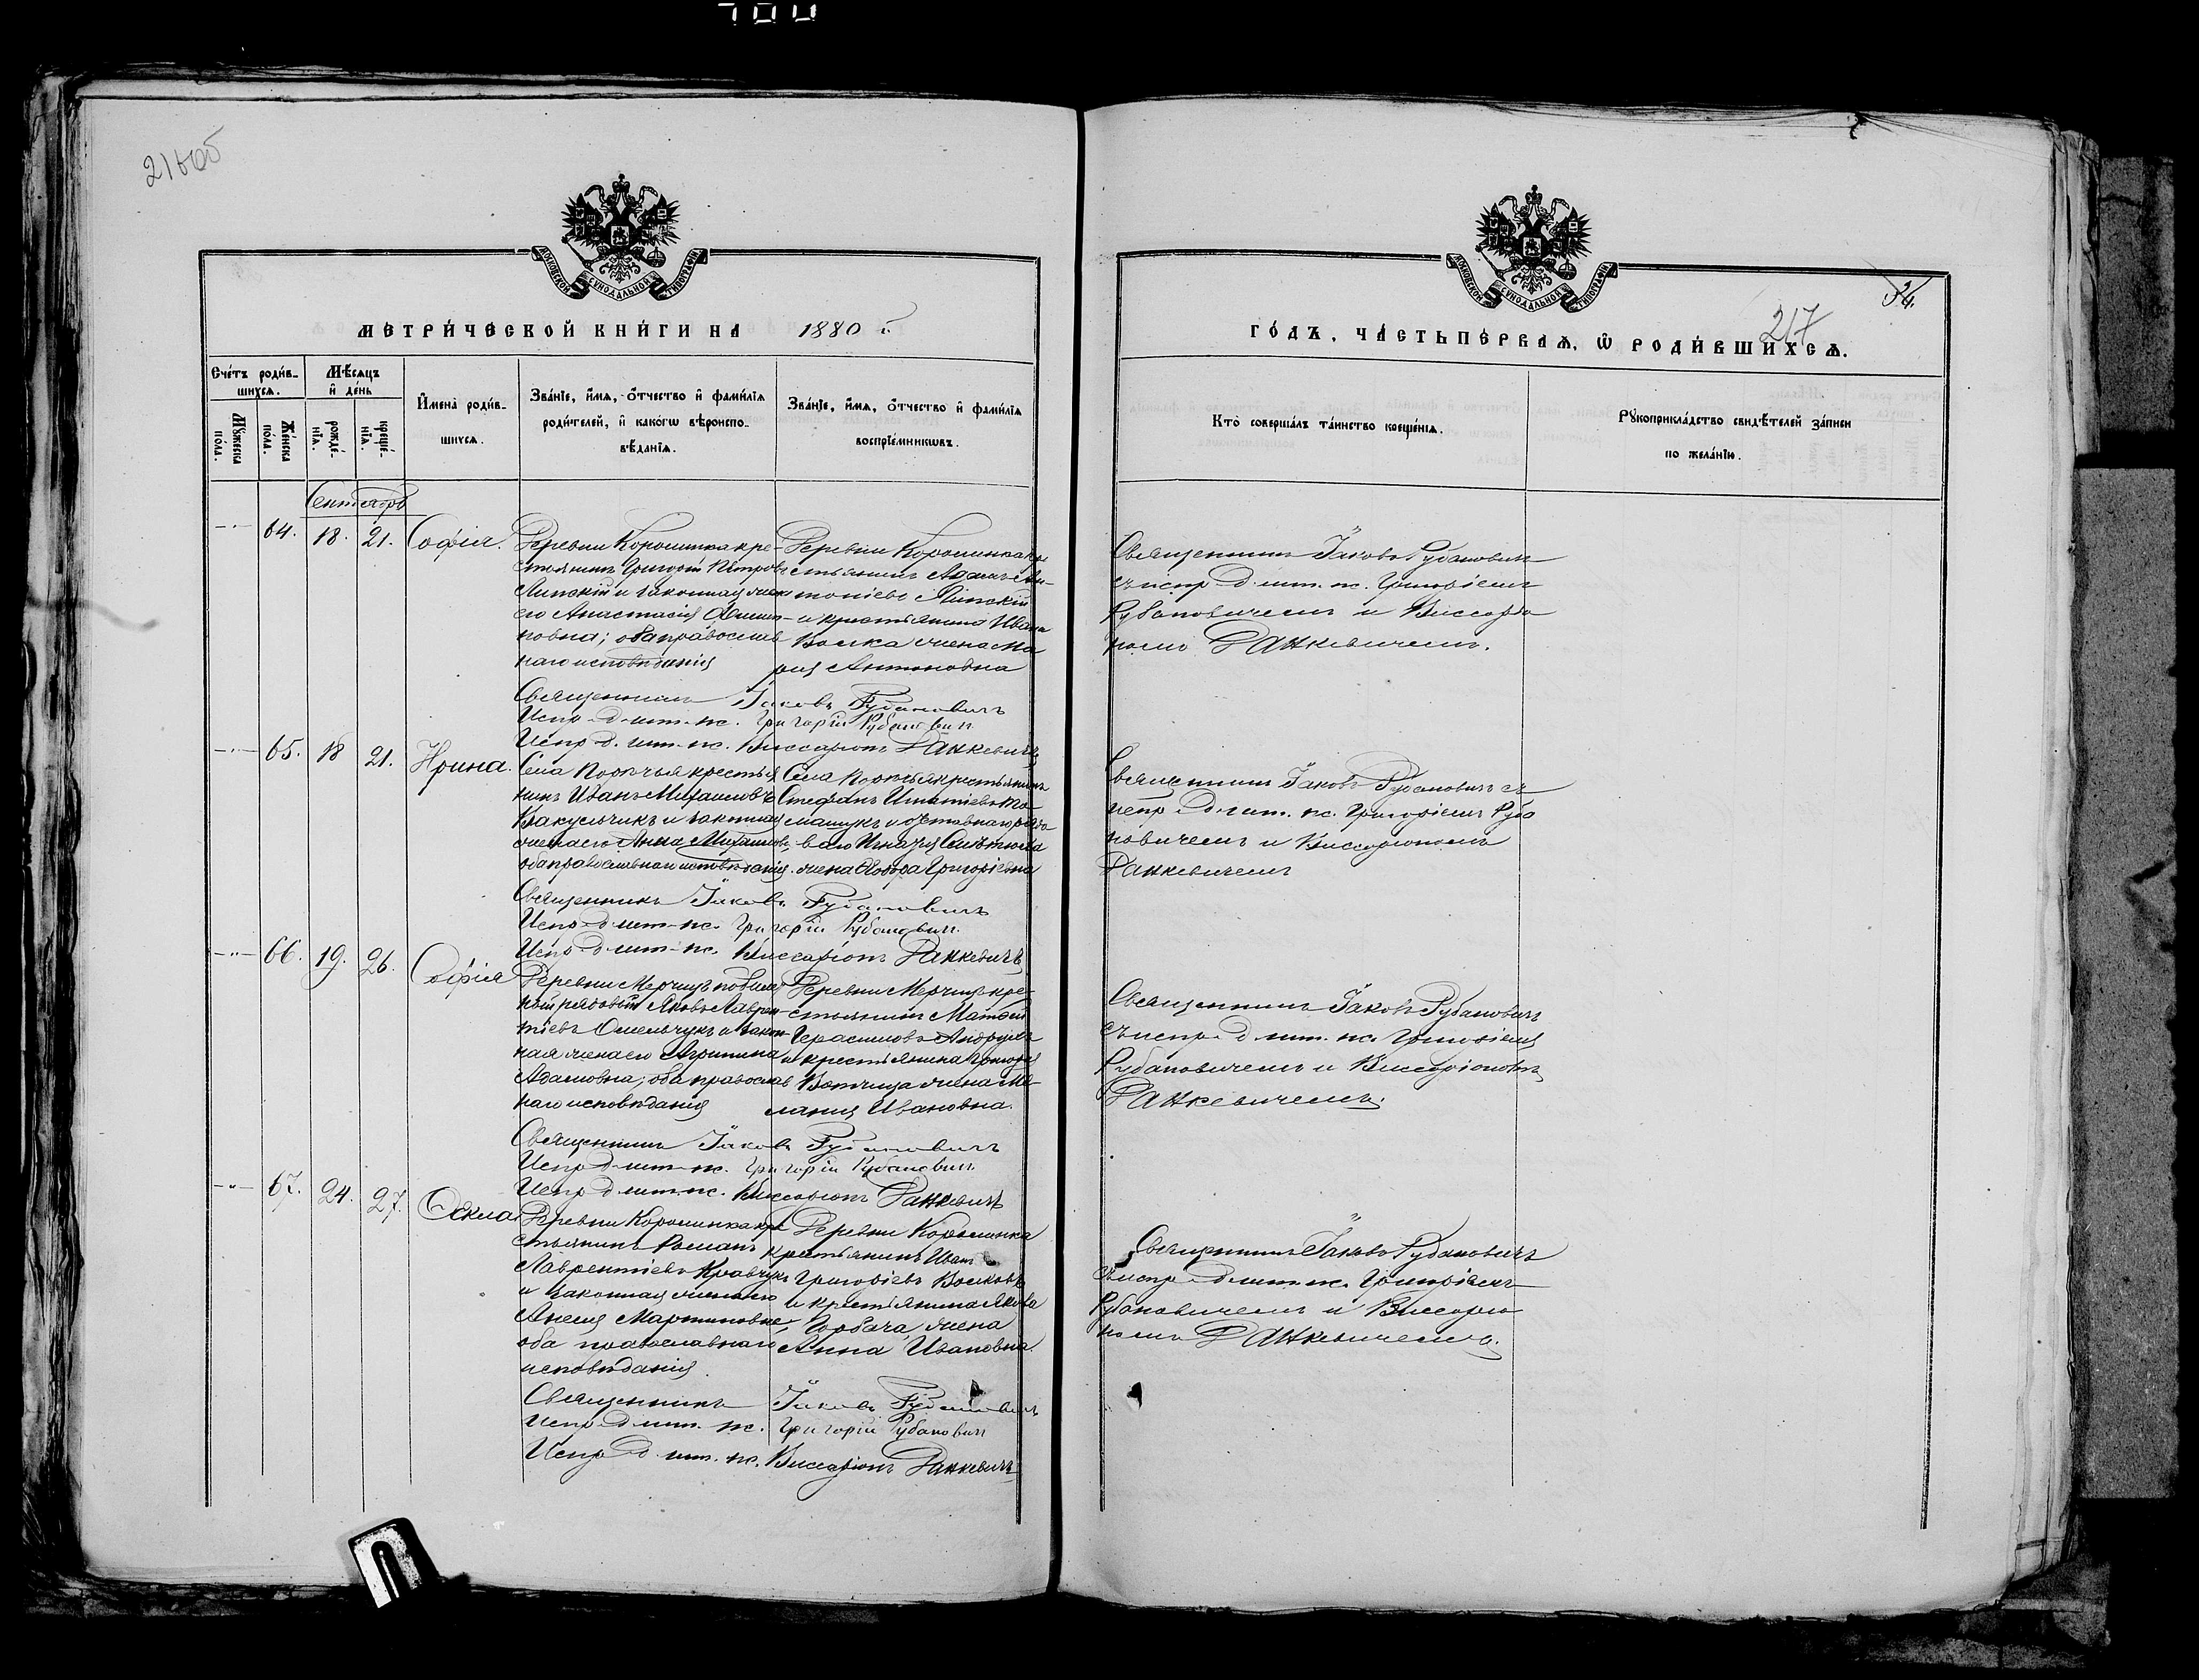 700
216об
МОСКОВСКОЙ СУНОДАЛЬНОЙ ТИПОГРАФІИ
МЕТРИ́ЧЕСКОЙ КНИ́ГИ НА 1880 г.
Сче́тъ роди́в-
шихсѧ.
Мѣ́сѧцъ
и҆ де́нь
Мꙋ́жеска по́ла.
Же́нска по́ла.
рожде́-нїѧ.
креще́-нїѧ.
И҆мена̀ роди́в-
шихсѧ.
Зва́нїе, и҆́мѧ, ѻ҆́тчество и҆ фами́лїѧ
роди́телей, и҆ како́гѡ вѣроиспо-
вѣ́данїѧ.
Зва́нїе, и҆́мѧ, ѻ҆́тчество и҆ фами́лїѧ
воспрїе́мникѡвъ.
Сентябрь
64. 18. 21. Софія.
Деревни Коросинка кре-
стьянинъ Григорій Петровъ
Липскій и законная жена
его Анастасія
повна; оба православ
наго исповѣданія
Деревни Коросинка кре
стьянинъ Адамъ Ан-
тоніевъ Липскій
и крестьянина Ивана
Волка жена Ма
рія Антоновна
Священникъ Іаковъ Рубановичъ
Испр. д. шт. пс. Григорій Рубановичъ
Испр. д. шт. пс. Виссаріонъ Данкевичъ
65. 18 21. Ирина.
Села Порѣчья крестья
нинъ Иванъ Михаиловъ
Бракулчикъ и законная
жена его Анна Михайлов
оба православнаго исповѣданія.
Села Порѣчья крестьянинъ
Стефанъ Игнатіевъ То-
машукъ и отставнаго рядо
ваго Игнатія
жена Ѳеодора Григоріевна
Священникъ Іаковъ Рубановичъ
Испр. д. шт. пс. Григорій Рубановичъ.
Испр. д. шт. пс. Виссаріонъ Данкевичъ
66. 19. 26. Софія
Деревни Мерчицъ
рядовый Яковъ Лаврен-
тіевъ Омельчукъ и закон-
ная жена его Агрипина
Адамовна; оба православ
наго исповѣданія
Деревни Мерчицъ кре-
стьянинъ Матѳей
Герасимовъ
и крестьянина Григорія
жена Ме-
ланія Ивановна.
Священникъ Іаковъ Рубановичъ
Испр. д. шт. пс. Григорій Рубановичъ
Испр. д. шт. пс. Виссаріонъ Данкевичъ
67. 24. 27. Ѳекла
Деревни Коросинка кре
стьянинъ Романъ
Лаврентіевъ Кравчукъ
и законная жена его
Анелія Мартиновна
оба православнаго
исповѣданія.
Деревни Коросинка
крестьянинъ Иванъ
Григоріевъ Волковъ
и крестьянина Якова
Горбача жена
Анна Ивановна.
Священникъ Іаковъ Рубановичъ
Испр. д. шт. пс. Григорій Рубановичъ
Испр. д. шт. пс. Виссаріонъ Данкевичъ
МОСКОВСКОЙ СУНОДАЛЬНОЙ ТИПОГРАФІИ
217
ГО́ДЪ, ЧА́СТЬ ПЕ́РВАѦ, Ѡ҆ РОДИ́ВШИХСѦ.
Кто̀ соверша́лъ та́инство креще́нїѧ.
Рꙋкоприкла́дство свидѣ́телей за́писи
по жела́нїю.
Священникъ Іаковъ Рубановичъ
съ испр. д. шт. пс. Григоріемъ
Рубановичемъ и Виссаріо
номъ Данкевичемъ.
Священникъ Іаковъ Рубановичъ съ
испр. д. шт. пс. Григоріемъ Руба
новичемъ и Виссаріономъ
Данкевичемъ
Священникъ Іаковъ Рубановичъ
съ испр. д. шт. пс. Григоріемъ
Рубановичемъ и Виссаріономъ
Данкевичемъ.
Священникъ Іаковъ Рубановичъ
съ испр. д. шт. пс. Григоріемъ
Рубановичемъ и Виссаріо
номъ Данкевичемъ.